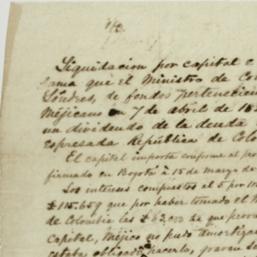 Liquidacion por capital e
suma que el Ministro de Co
Londres, de fondos pertenecien
Méjicano en 7 de abril de 18
un dividendo de la deuda
espresada República de Colo
El capital importa conforme al pro
firmado en Bogotá á 15 de marzo de
Los intereses compuestos al 5 por
$115.659 que por haber tomado el M
de Colombia las £ 63,000 se que pro
capital, Méjico no pudo amortiza
estaba obligado hacerlo, gravan